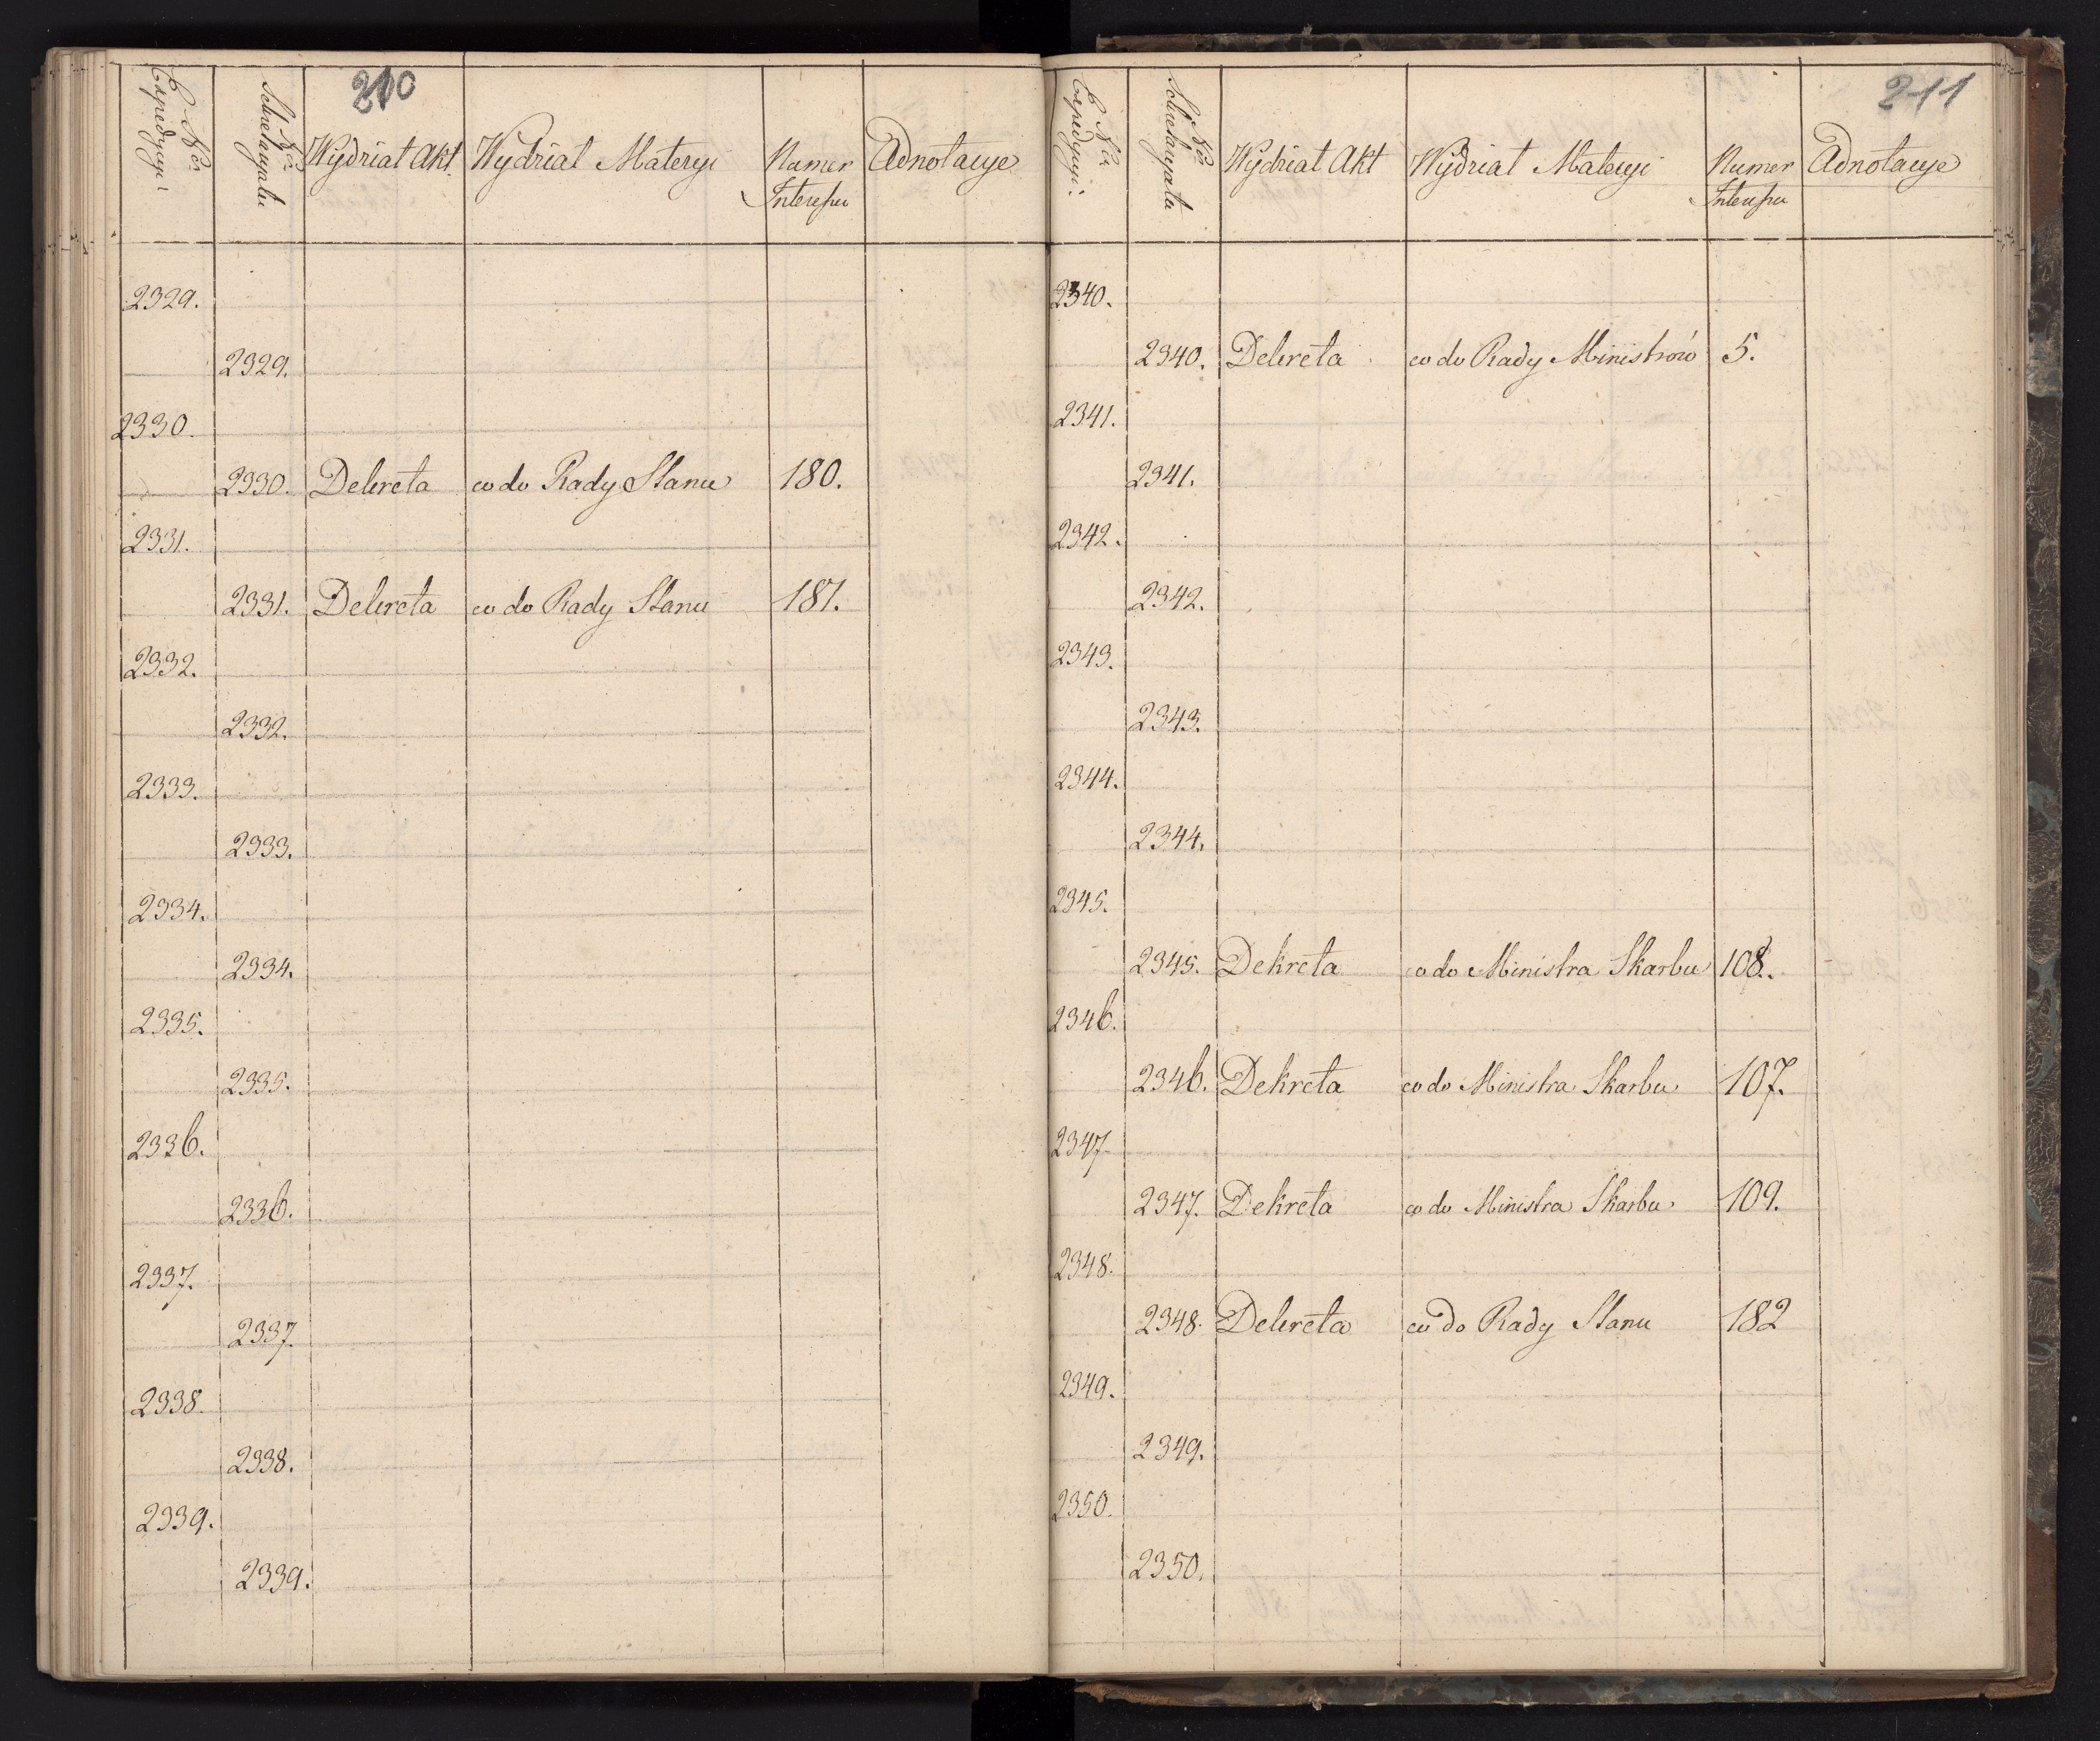 210
Nro Expedycyi
Nro Sekretaryatu
Wydział Akt.
Wydział Materyi
Numer Interessu
Adnotacye
2329.
2329.
2330.
2330. Dekreta co do Rady Stanu 180.
2331.
2331. Dekreta co do Rady Stanu 181.
2332.
2332.
2333.
2333.
2334.
2334.
2335.
2335.
2336.
2336.
2337.
2337.
2338.
2338.
2339.
2339.
211
Nro Expedycyi
Nro Sekretaryatu
Wydział Akt
Wydział Materyi
Numer Interessu
Adnotacye
2340.
2340. Dekreta co do Rady Ministrów 5.
2341.
2341.
2342.
2342.
2343.
2343.
2344.
2344.
2345.
2345. Dekreta co do Ministra Skarbu 108.
2346.
2346. Dekreta co do Ministra Skarbu 107.
2347
2347. Dekreta co do Ministra Skarbu 109.
2348.
2348. Dekreta co do Rady Stanu 182
2349.
2349.
2350.
2350.